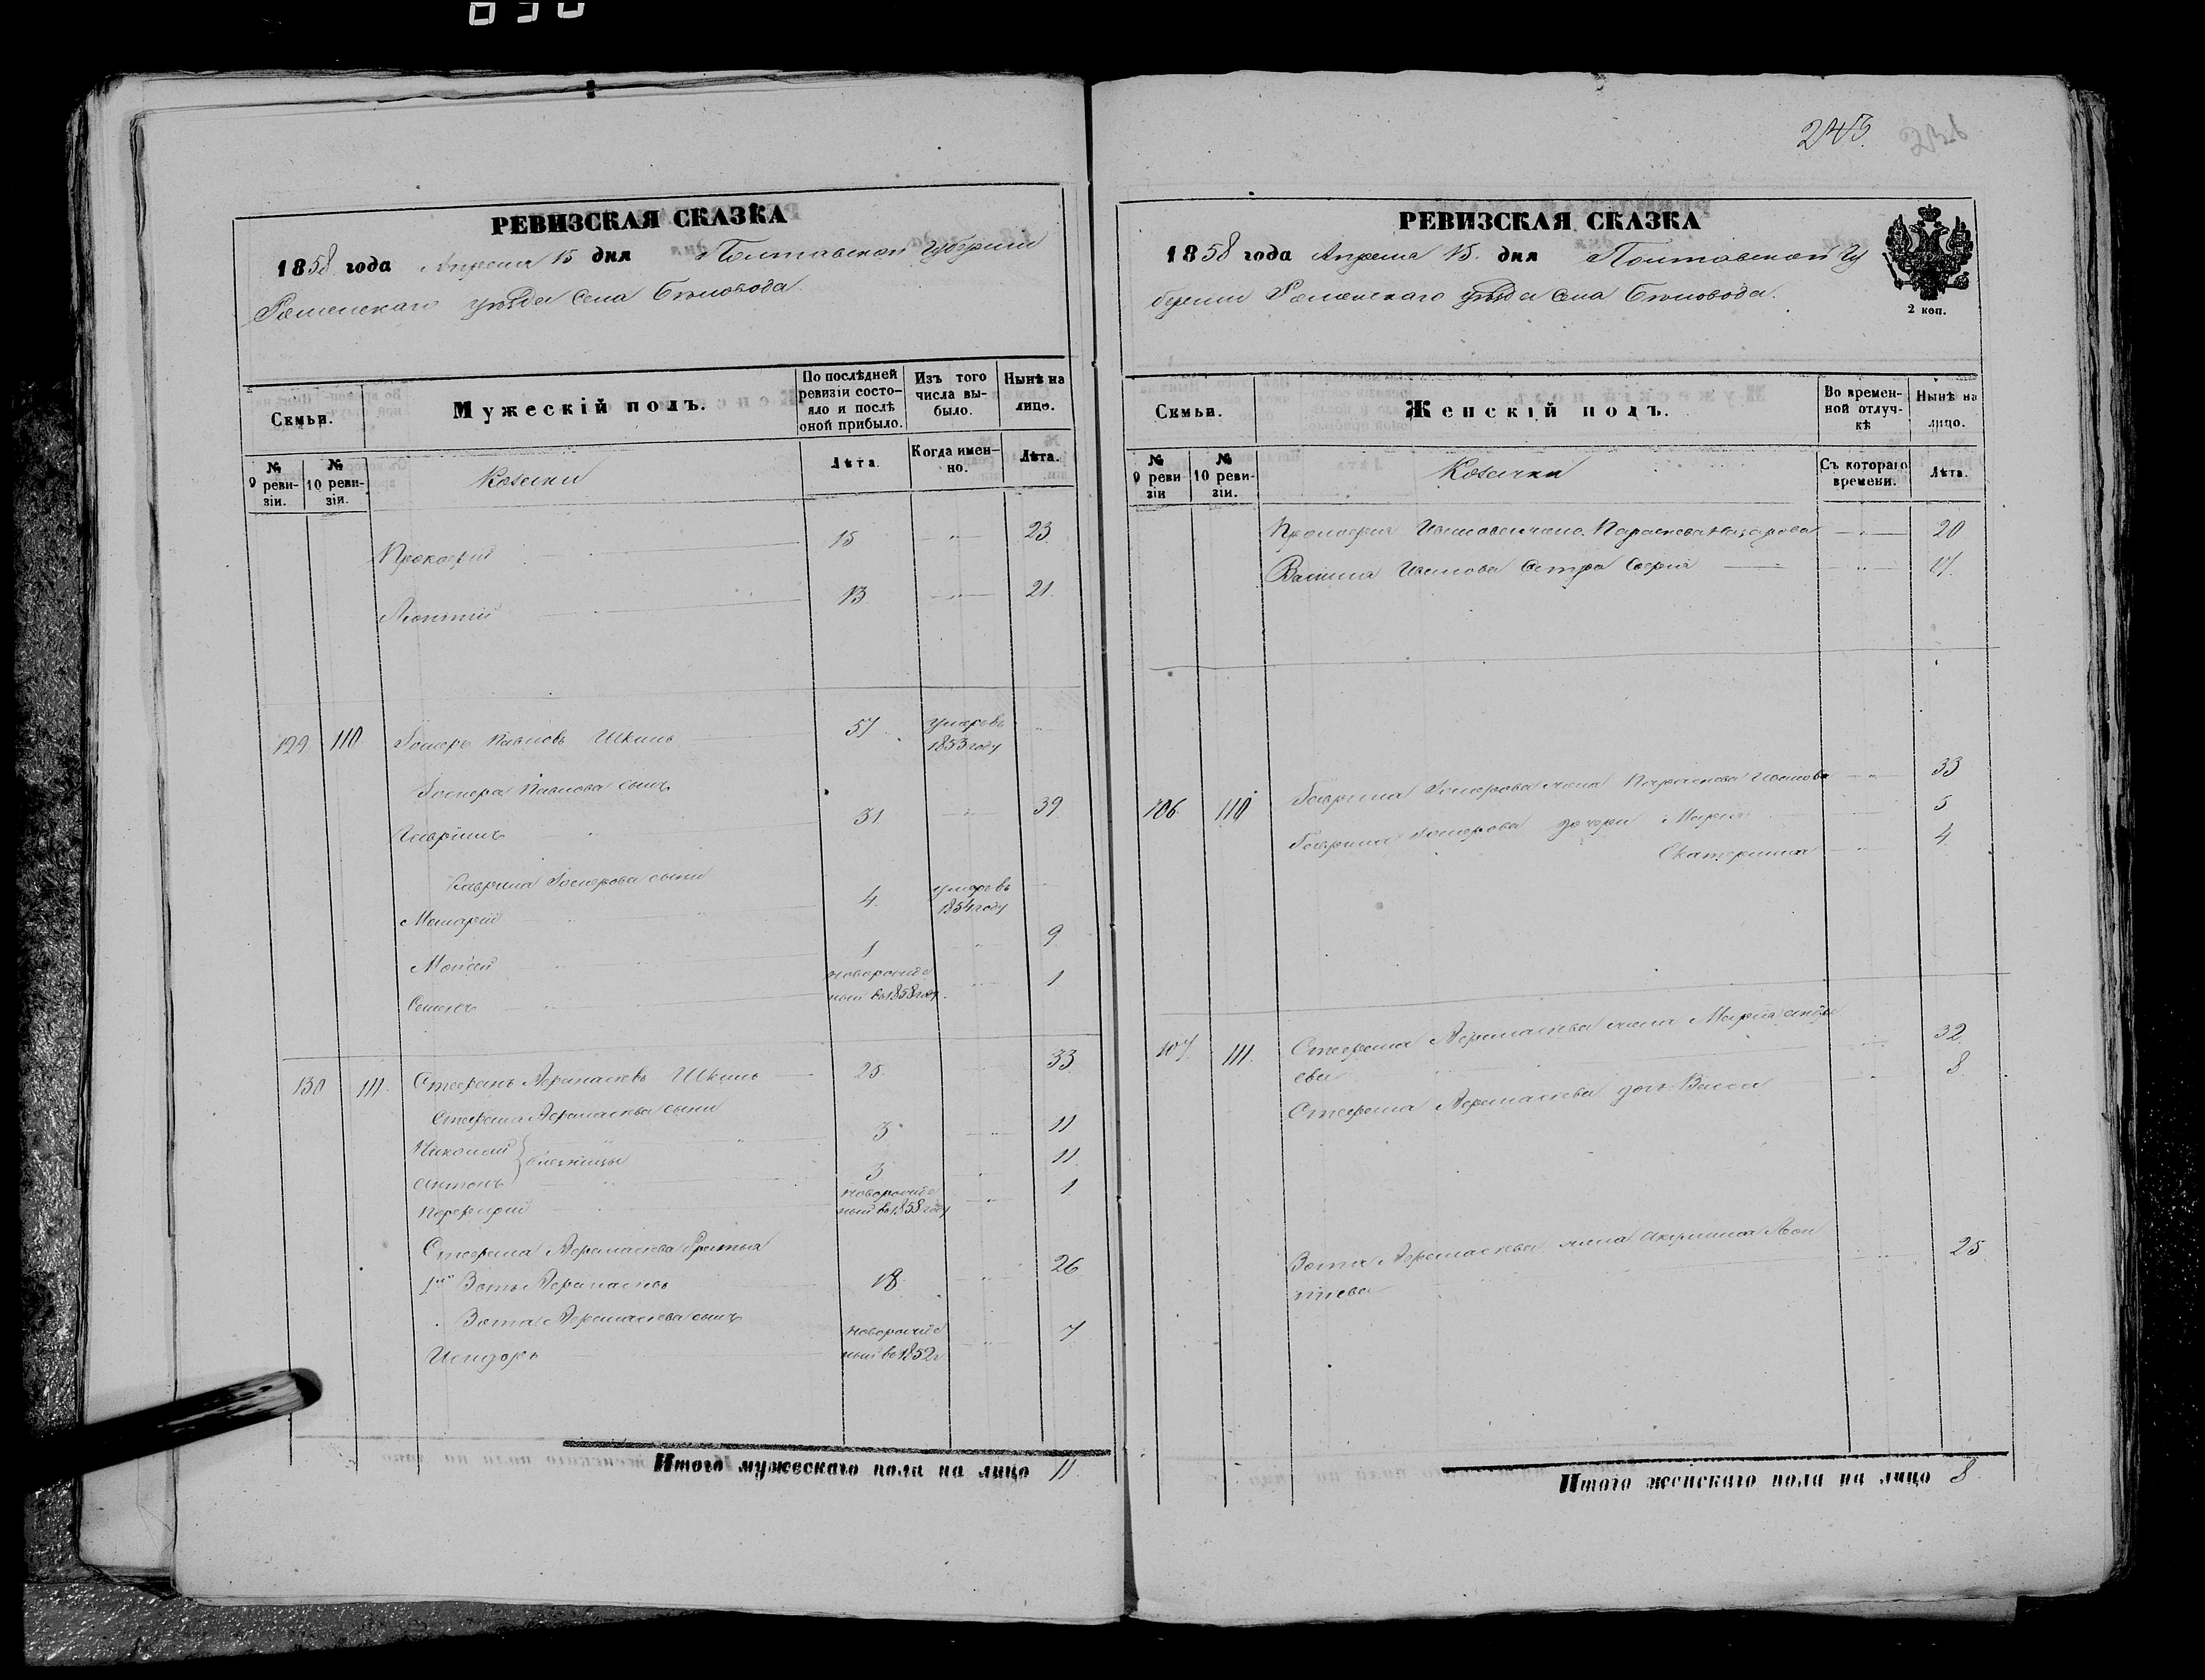 243
236
РЕВИЗСКАЯ СКАЗКА
1858 года Апреля 15 дня Полтавской Губернии
Роменскаго уѣзда села Бѣловода.
Семьи.
Мужескій полъ.
По послѣдней ревизіи состояло и послѣ оной прибыло.
Изъ того числа выбыло.
Нынѣ на лицо.
№ 9 ревизіи.
№ 10 ревизіи.
Козаки
Лѣта.
Когда именно.
Лѣта.
Прокофій 15 " 23
Леонтій 13 " 21.
129 110 Госифъ Павловъ Шкиль 57 умеръ въ 1853 году "
Павлова сынъ
Гавріилъ 31. " 39
Гаврила сыны
Макарій 4. умеръ въ 1854 году
Моисей 1 " 9
Семенъ новорожденный въ 1858 году. " 1
130 111. Стефанъ Афанасіевъ Шкиль 25. 33
Стефана Афанасіева сыны
Николай } близнецы 3 " 11
Антонъ 3 " 11.
Порфирій новорожденный въ 1858 году " 1
Стефана Афанасіева братья
1й Зотъ Афанасіевъ 18. " 26
Зота Афанасіева сынъ
Исидоръ новорожденный въ 1852 г " 7
Итого мужескаго пола на лицо 11.
РЕВИЗСКАЯ СКАЗКА
1858 года Апреля 15. дня Полтавской Гу
берніи Роменскаго уѣзда села Бѣловода.
2 коп.
Семьи.
Женскій полъ.
Во временной отлучкѣ
Нынѣ на лицо.
№ 9 ревизіи
№ 10 ревизіи.
Козачки
Съ котораго времени.
Лѣта.
Прокофія жена Параскева Назарова " 20
Василія сестра Софія " 17.
106. 110 Гаврила жена Параскева " 33
Гаврила дочери Марія 5
Екатерина " 4
107. 111. Стефана Афанасіева жена Марія 32
ева
Стефана Афанасіева дочь " 8
Зота Афанасіева жена Акулина Леон
тіева " 25
Итого женскаго пола на лицо 8